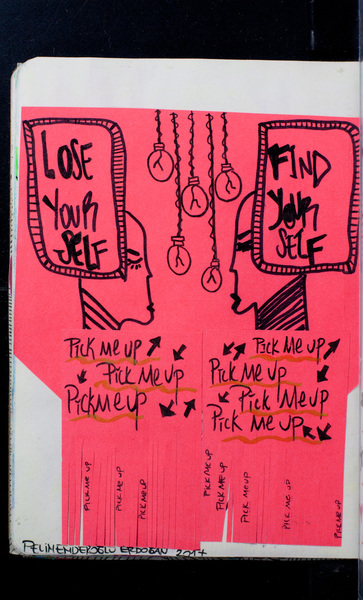 LOSE
YOUR
SELF
FIND
YOUR
SELF
PiCK ME UP
PiCK ME UP
PiCKMEUP
PiCK ME UP
PiCK ME UP
PiCK ME UP
PiCK ME UP
PiCK ME UP
PiCK ME UP
PiCK ME UP
PiCK ME UP
PiCK ME UP
PiCK ME UP
PiCK ME UP
PELiNENDEROGLU ERDOGAN 2017